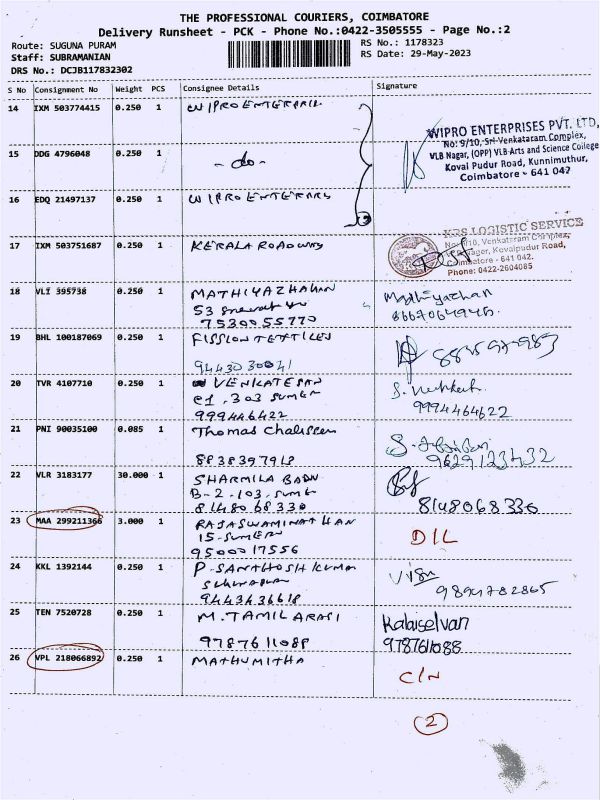 THE PROFESSIONAL COURIERS, COIMBATORE
Delivery Runsheet - PCK - Phone No.:0422-3505555 - Page No.:2
Route: SUGUNA PURAM
RS No.: 1178323
Staff: SUBRAMANIAN
RS Date: 29-May-2023
DRS No.: DCJB117832302
S No Consignment No Weight PCS Consignee Details Signature
14 IXM 503774415 0.250 1 WIPRO
WIPRO ENTERPRISES PVT. LTD,
No: 9/10, Sri Venkataram Complex,
15 DDG 4796048 0.250 1 - do-
VLB Nagar, (OPP) VLB Arts and Science College
Kovai Pudur Road, Kunnimuthur,
Coimbatore - 641 042
16 EDQ 21497137 0.250 1 WIPRO
17 IXM 503751687 0.250 1 KERALA ROADWAYS
KRS LOGISTIC SERVICE
No: 9/10, Venkataram Complex,
VLB Nagar, Kovaipudur Road,
Coimbatore - 641 042.
Phone: 0422-2604085
18 VLI 395738 0.250 1 MATHIYAZHAHAN
53
7530055770
Mathiyazhan
19 BHL 100187069 0.250 1 FISSION TEXTILES
9443030041
20 TVR 4107710 0.250 1 VENKATESAN
303
999446422
9994464622
21 PNI 90035100 0.085 1 Thomas
8838397918
9629123432
22 VLR 3183177 30.000 1 SHARMILA BANU
B-2-103-
8148068330
8148068330
23 MAA 299211366 3.000 1 RAJASWAMINATHAN
15-
9500017556
D/L
24 KKL 1392144 0.250 1 P. SANTHOSH KUMAR
9443636618
9894782865
25 TEN 7520728 0.250 1 M. TAMILARASI
9787611088
Kalaiselvan
9787611088
26 VPL 218066892 0.250 1 MATHUMITHA
C/N
2